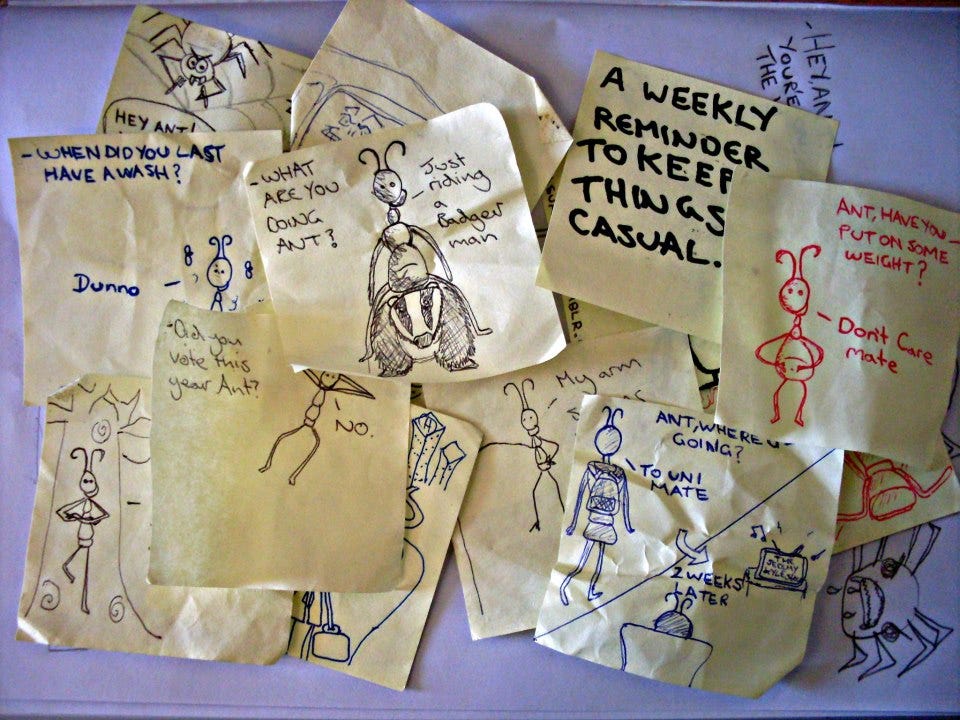 HEY ANT!
- WHEN DID YOU LAST
HAVE A WASH?
Dunno -
- WHAT
ARE YOU
DOING
ANT?
Just
riding
a
Badger
man
A WEEKLY
REMINDER
TO KEEP
THINGS
CASUAL.
- HEY AN
YOU'RE
THE
ANT, HAVE YOU -
PUT ON SOME
WEIGHT?
- Don't Care
mate
- Did you
vote this
year Ant?
NO.
My arm
ANT, WHERE U -
GOING?
TO UNI
MATE
2 WEEKS
LATER
THE
JEREMY
KYLE